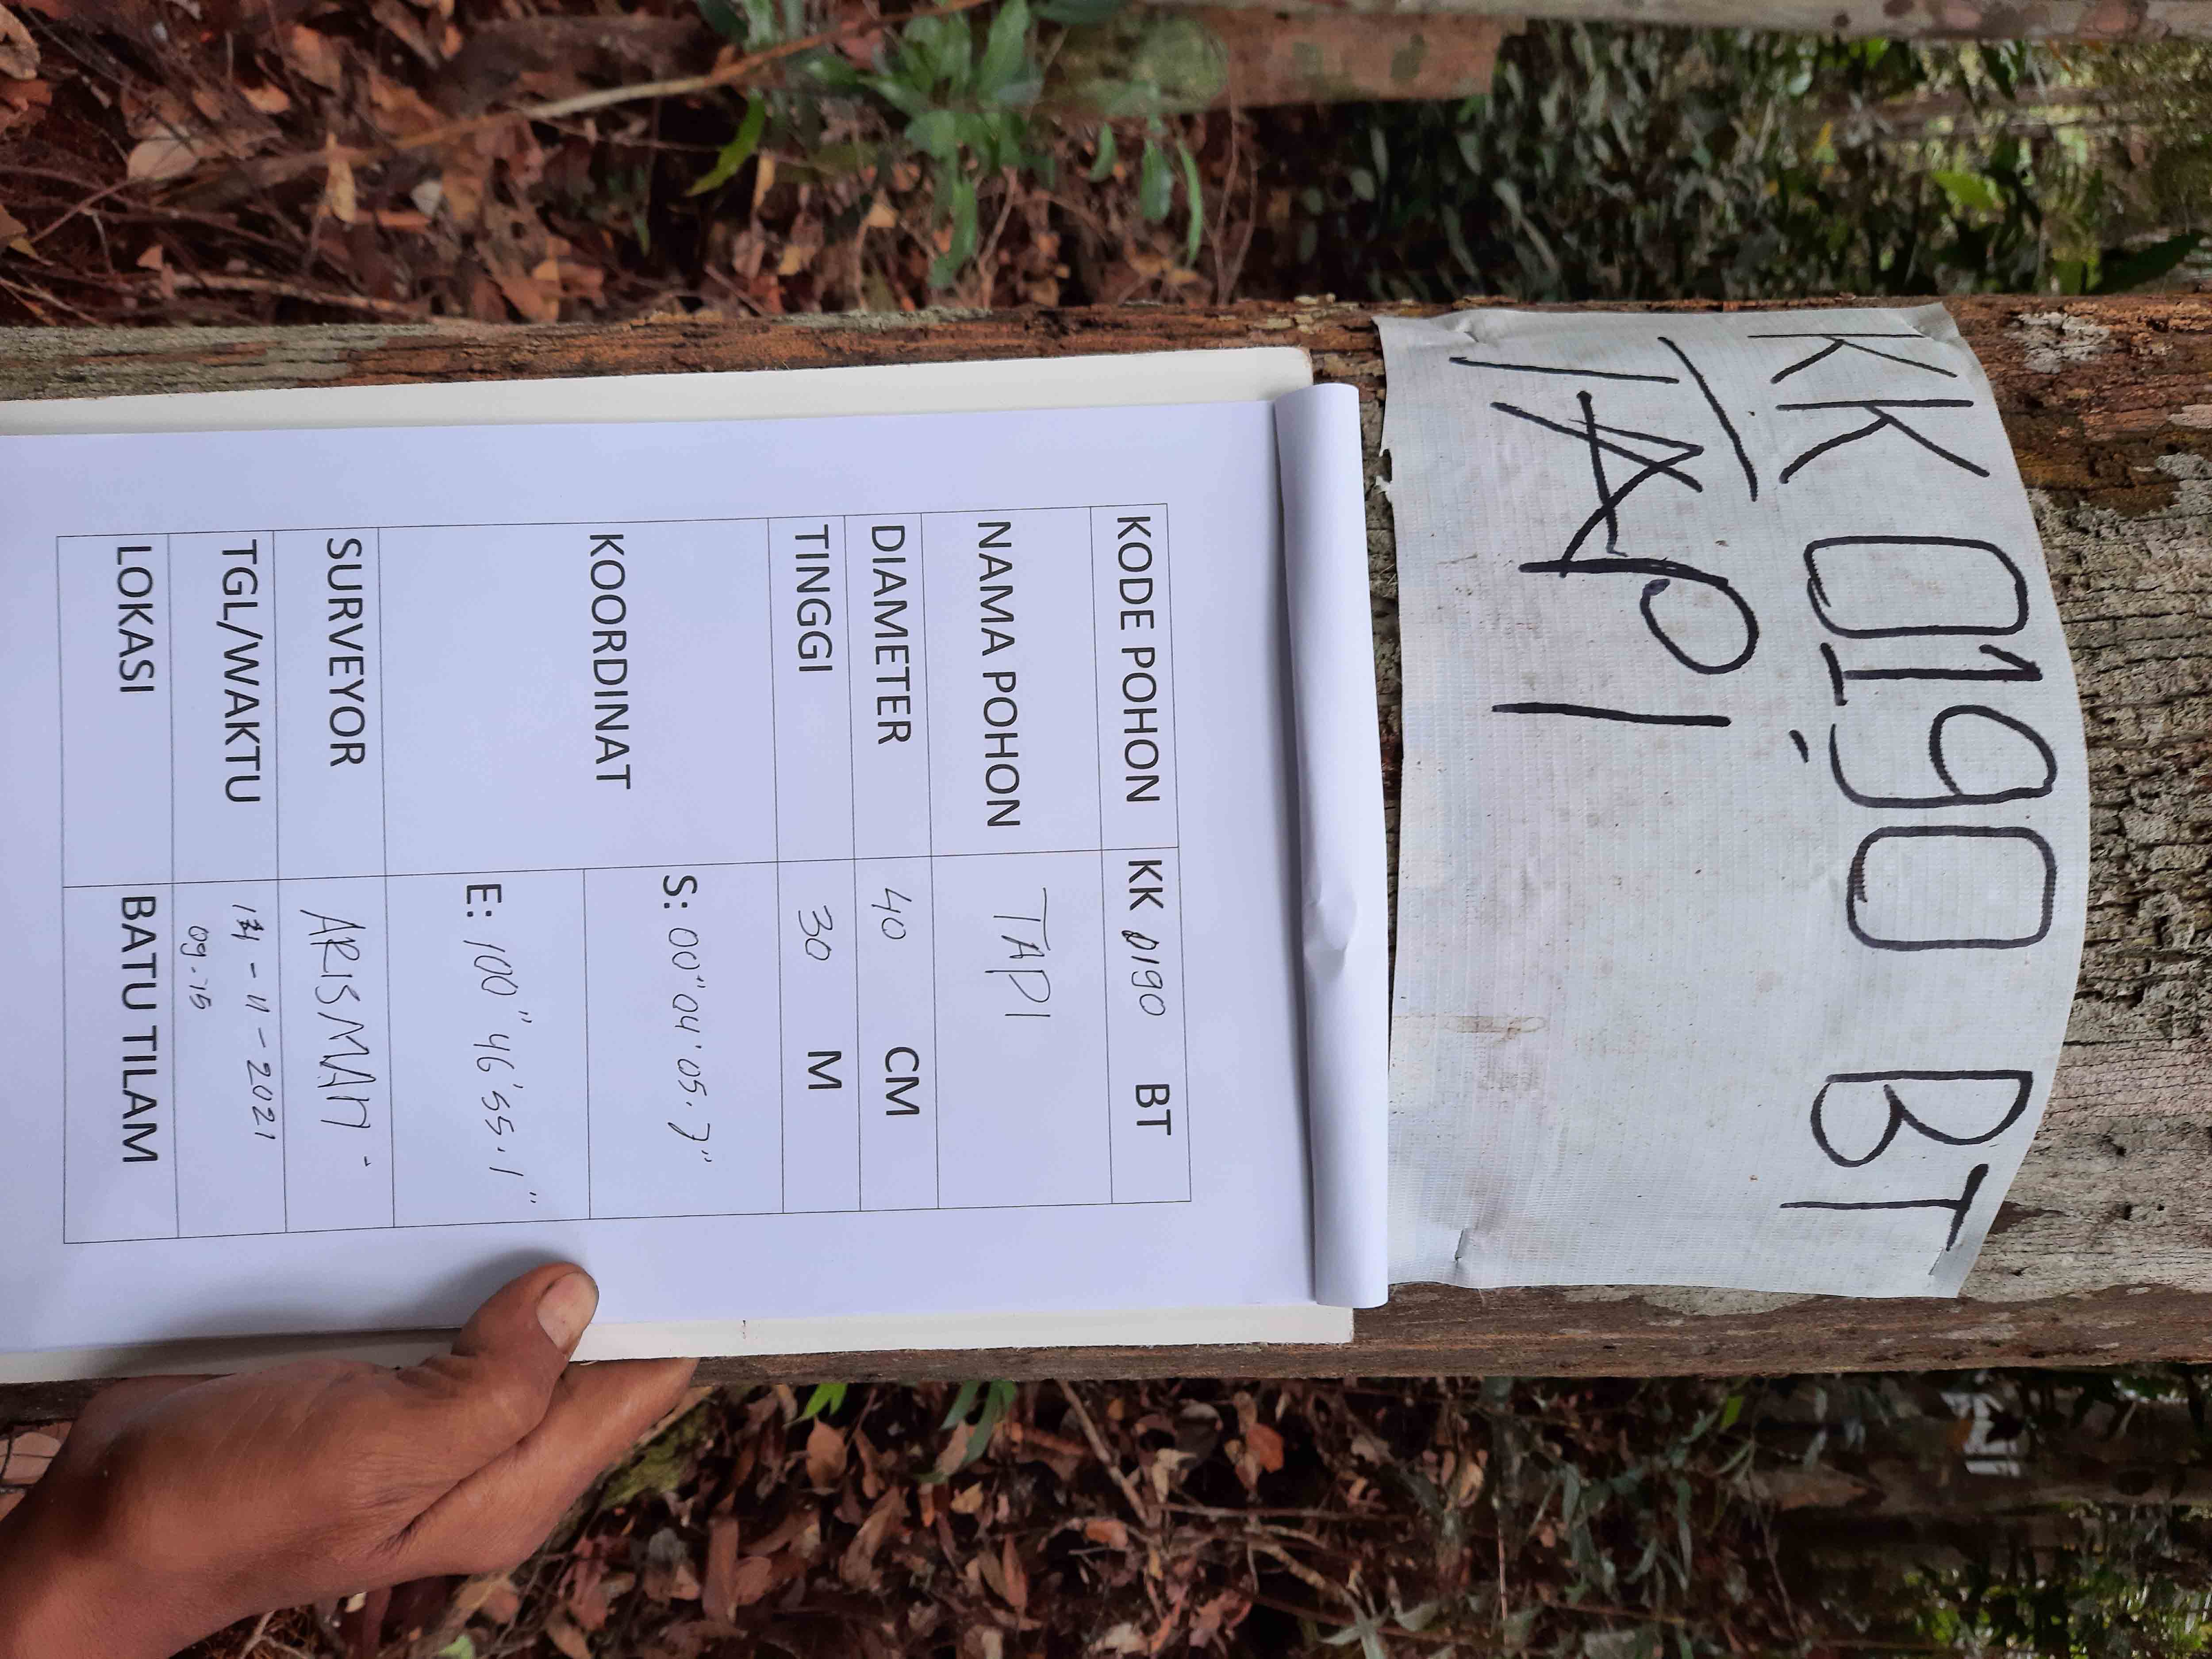 KK 0190 BT
TAPI
KODE POHON KK 0190 BT
NAMA POHON TAPI
DIAMETER 40 CM
TINGGI 30 M
KOORDINAT
S: 00" 04' 05.7"
E: 100" 46' 55.1"
SURVEYOR ARISMAN
TGL/WAKTU - 11 - 2021
09.15
LOKASI BATU TILAM